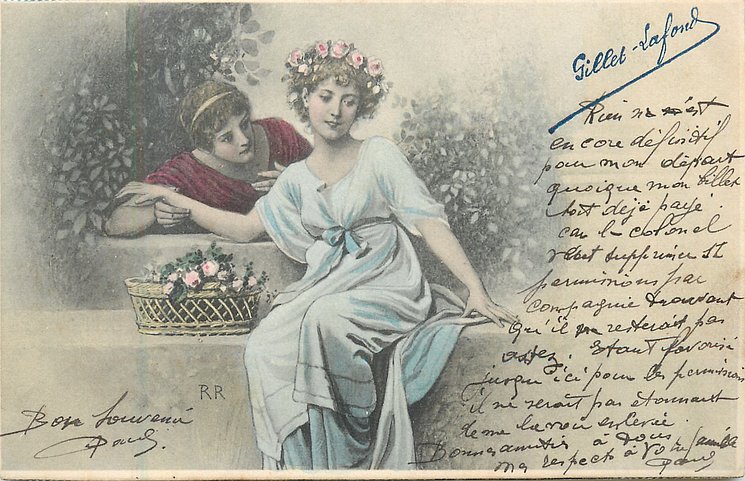 Gillet-Lafond
Rien ne m'est
encore définitif
pour mon départ
quoique mon billet
soit déjà payé.
car le colonel
veut supprimer 12
permissions par
compagnie trouvant
qu'il ne resterait pas
assez. Etant favorisé
jusque ici pour les permissions
il ne serait pas étonnant
de me la voir enlevée.
Bonnes amitiés à vous
mes respects à votre famille
Paul
RR
Bon souvenir
Paul